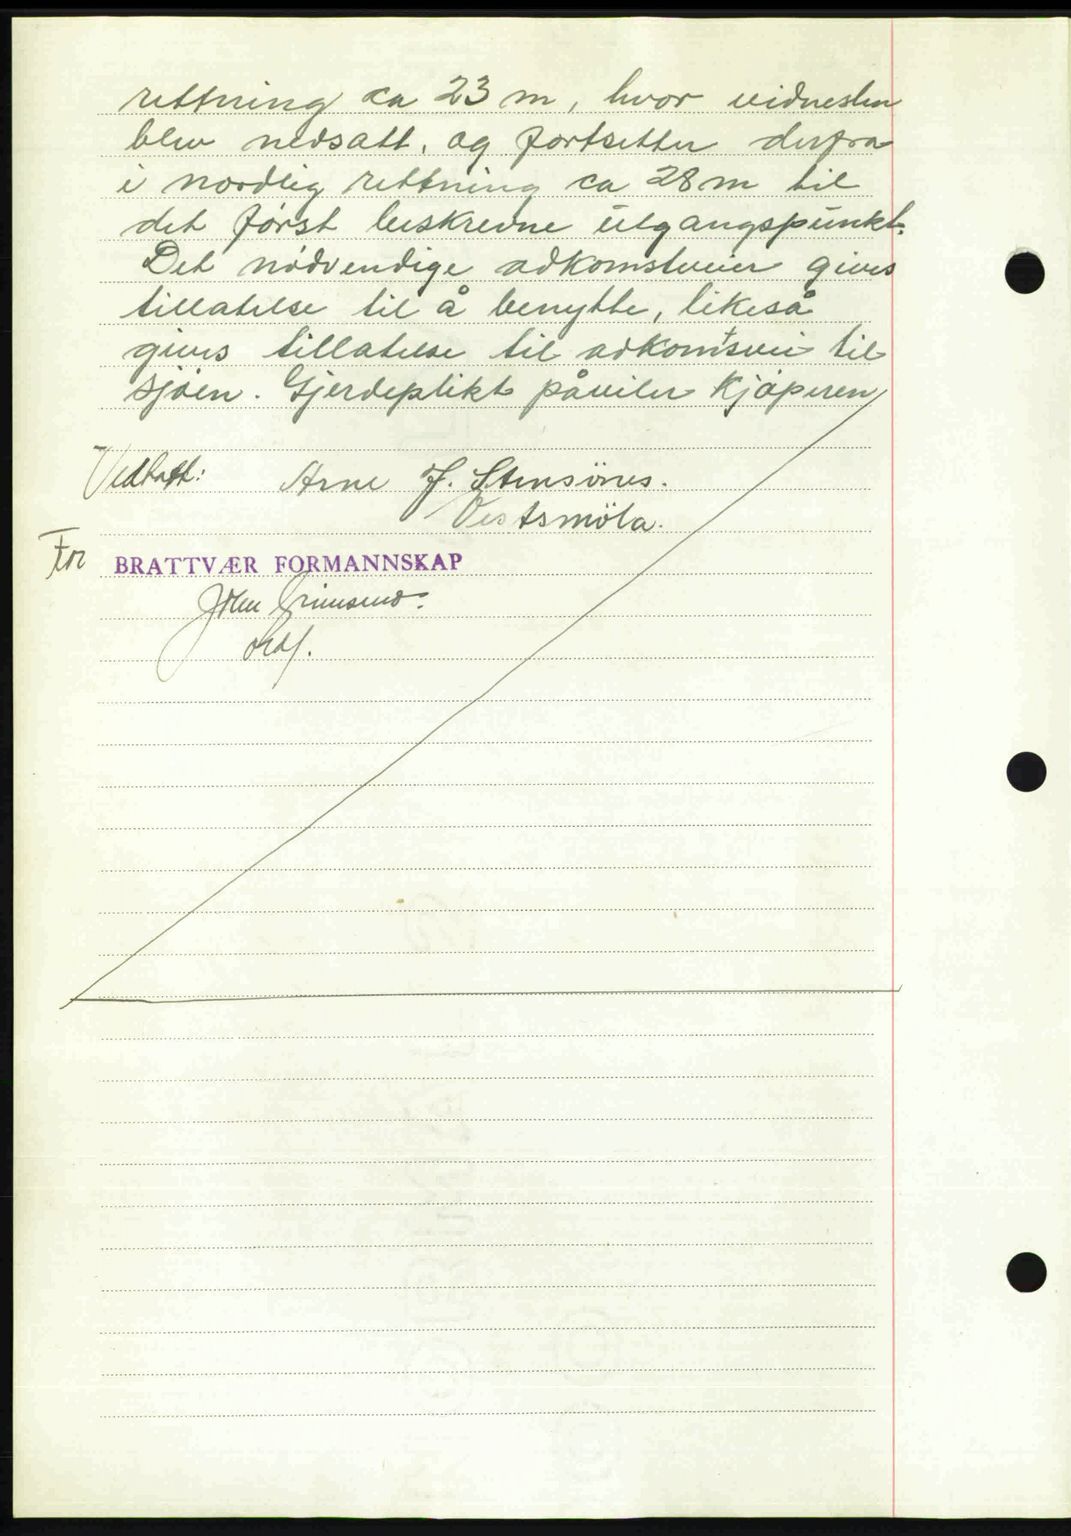 rettning ca 23 m, hvor vidnesten
blev nedsatt, og fortsetter derfra
i nordlig rettning ca 28 m til
det først beskrevne utgangspunkt.
Det nödvendige adkomstveier gives
tillatelse til å benytte, likeså
gives tillatelse til adkomstvei til
sjøen. Gjerdeplikt påviler Kjøperen
Vedtatt: Arne J. Stensönes.
Vestsmöla.
For BRATTVÆR FORMANNSKAP
John Grimsmo.
ordf.